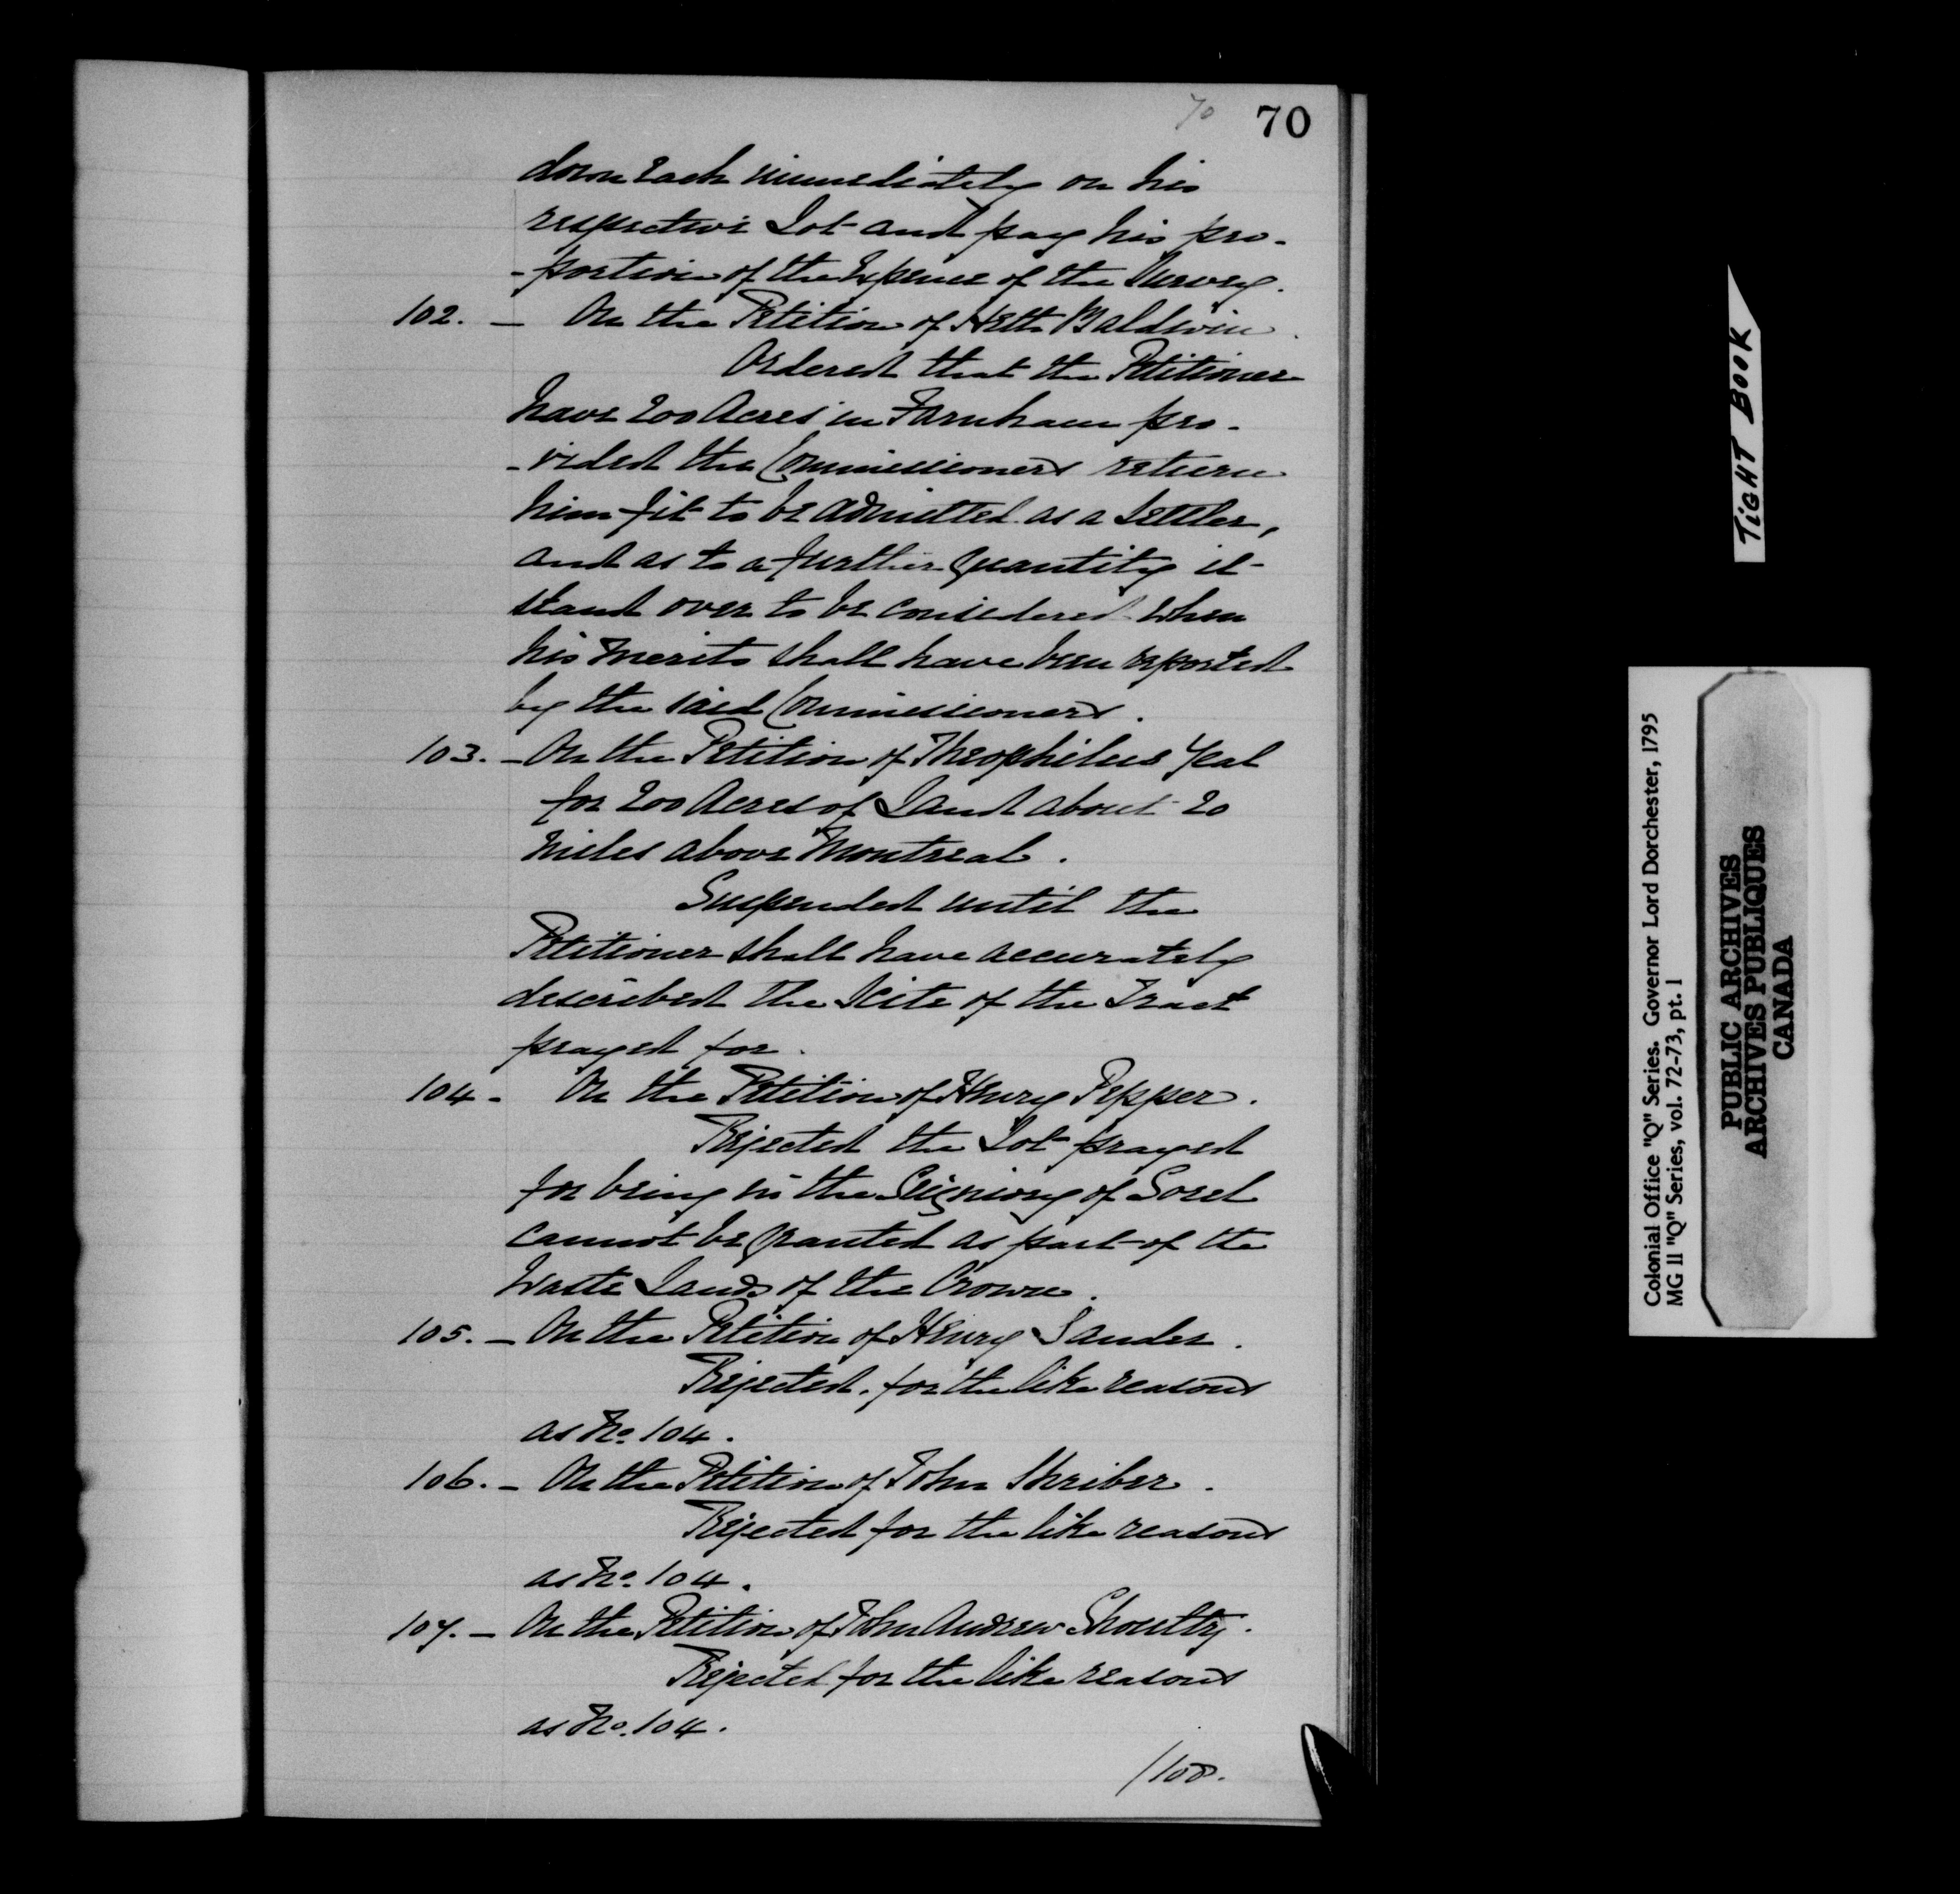 70 70
down each immediately on his
respective Lot and pay his pro-
-portion of the Expence of the Survey.
102. - On the Petition of Heth Baldwin.
Ordered that the Petitioner
have 200 Acres in Farnham pro-
-vided the Commissioners return
him fit to be admitted as a Settler,
and as to a further quantity it
stand over to be considered when
his merits shall have been reported
by the said Commissioners.
103. - On the Petition of Theophilus Yeal
for 200 Acres of Land about 20
miles above Montreal.
Suspended until the
Petitioner shall have accurately
described the Scite of the Tract
prayed for.
104 - On the Petition of Henry Pepper.
Rejected the Lot prayed
for being in the Seigniory of Sorel
cannot be granted as part of the
Waste Lands of the Crown.
105. - On the Petition of Henry Sander.
Rejected, for the like reasons
as No. 104.
106. - On the Petition of John Shriber.
Rejected for the like reasons
as No. 104.
107. - On the Petition of John Andrew Shoultz.
Rejected for the like reasons
as No. 104.
/108.
TIGHT BOOK
Colonial Office "Q" Series. Governor Lord Dorchester, 1795
MG 11 "Q" Series, vol. 72-73, pt. 1
PUBLIC ARCHIVES
ARCHIVES PUBLIQUES
CANADA